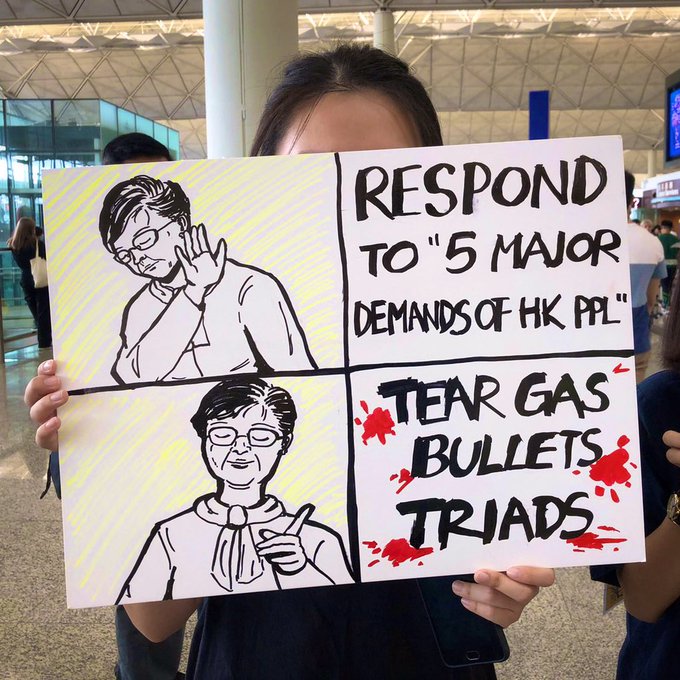 RESPOND
TO "5 MAJOR
DEMANDS OF HK PPL"
TEAR GAS
BULLETS
TRIADS